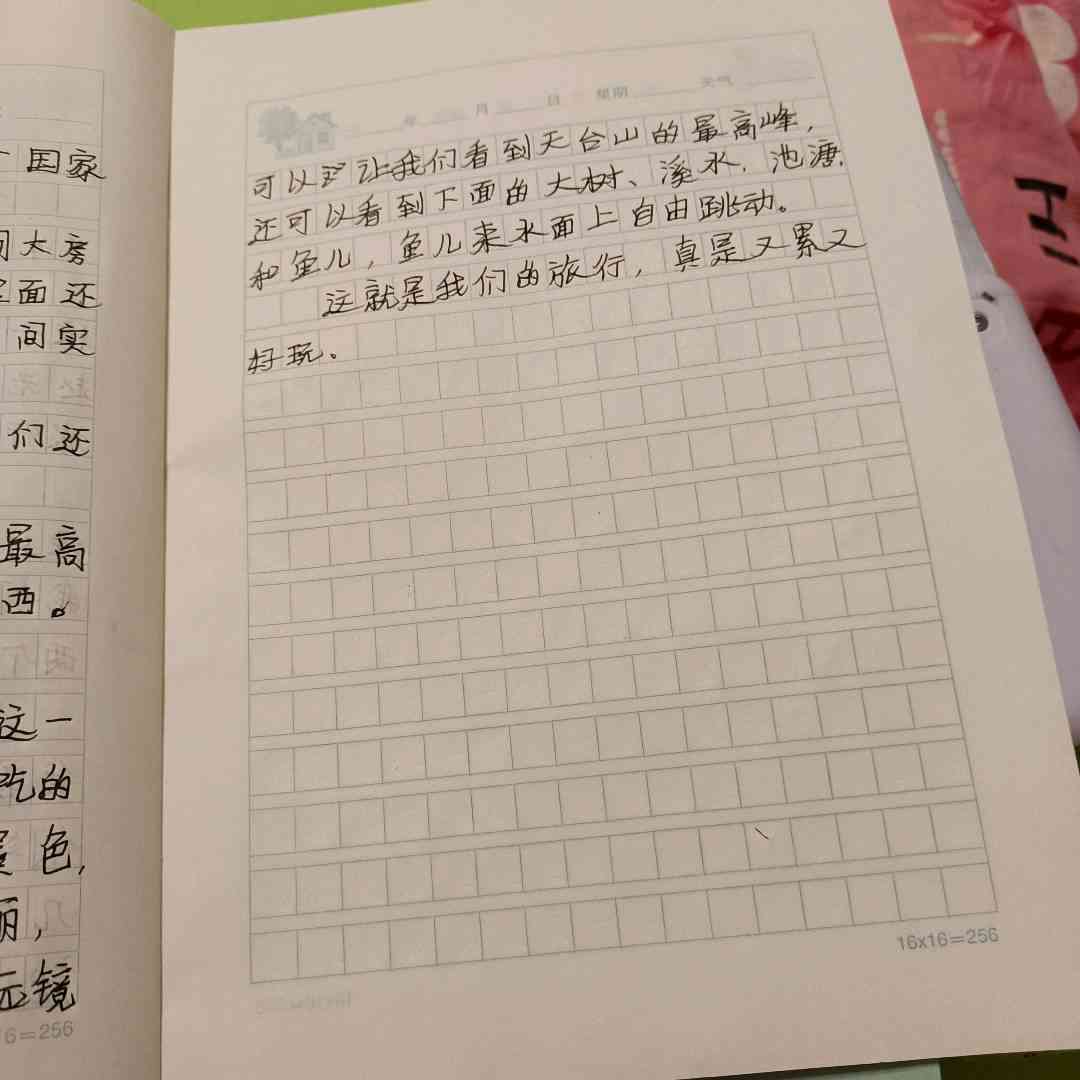 国家
大房
面还
间实
们还
最高
西。
这一
吃的
色,
丽,
远镜
6=256
年 月 日 星期 天气
可以让我们看到天台山的最高峰,
还可以看到下面的大树、溪水、池溏
和鱼儿,鱼儿在水面上自由跳动。
这就是我们的旅行,真是又累又
好玩。
16x16=256